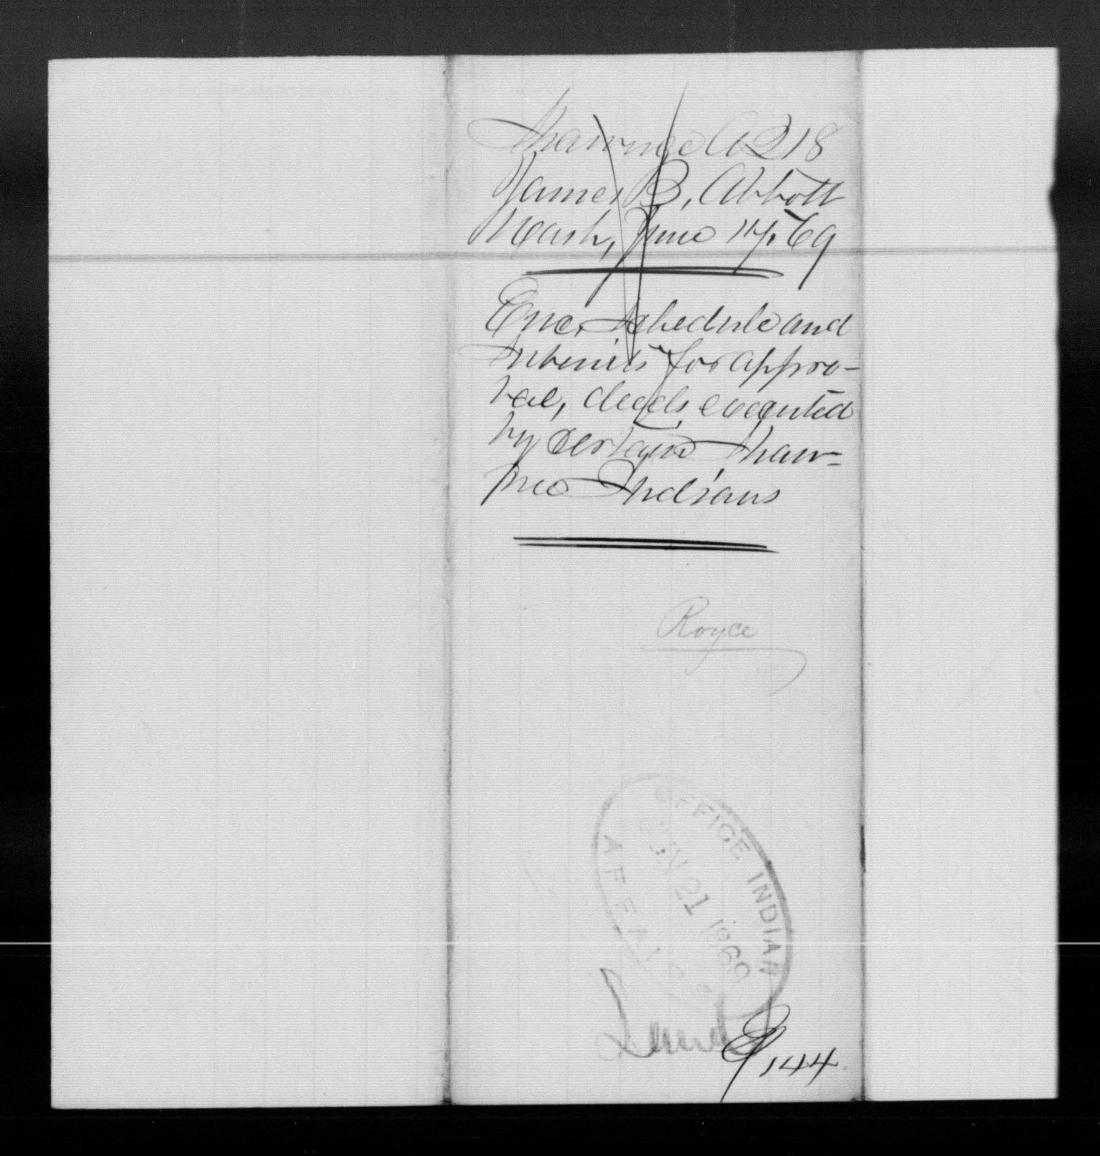 Shawnee A 218
James B. Abbott
Wash, June 17, 69
Enc. schedule and
submits for appro-
val, deeds executed
by certain Shaw-
nee Indians
Royce
OFFICE INDIAN
AFFAIRS
JUN 21 1869
Land
144